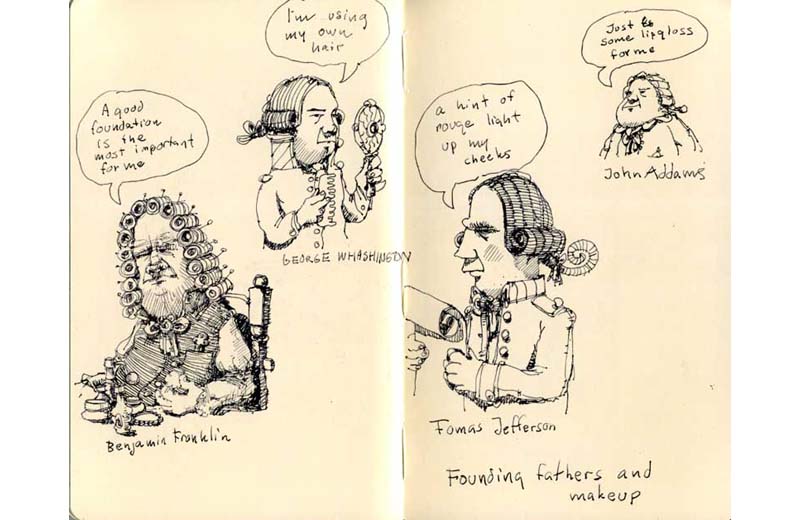 I'm using
my own
hair
A good
foundation
is the
most important
for me
GEORGE WHASHINGTON
Benjamin Franklin
Just
some lipgloss
for me
a hint of
rouge light
up my
cheeks
John Addams
Fomas Jefferson
Founding fathers and
makeup